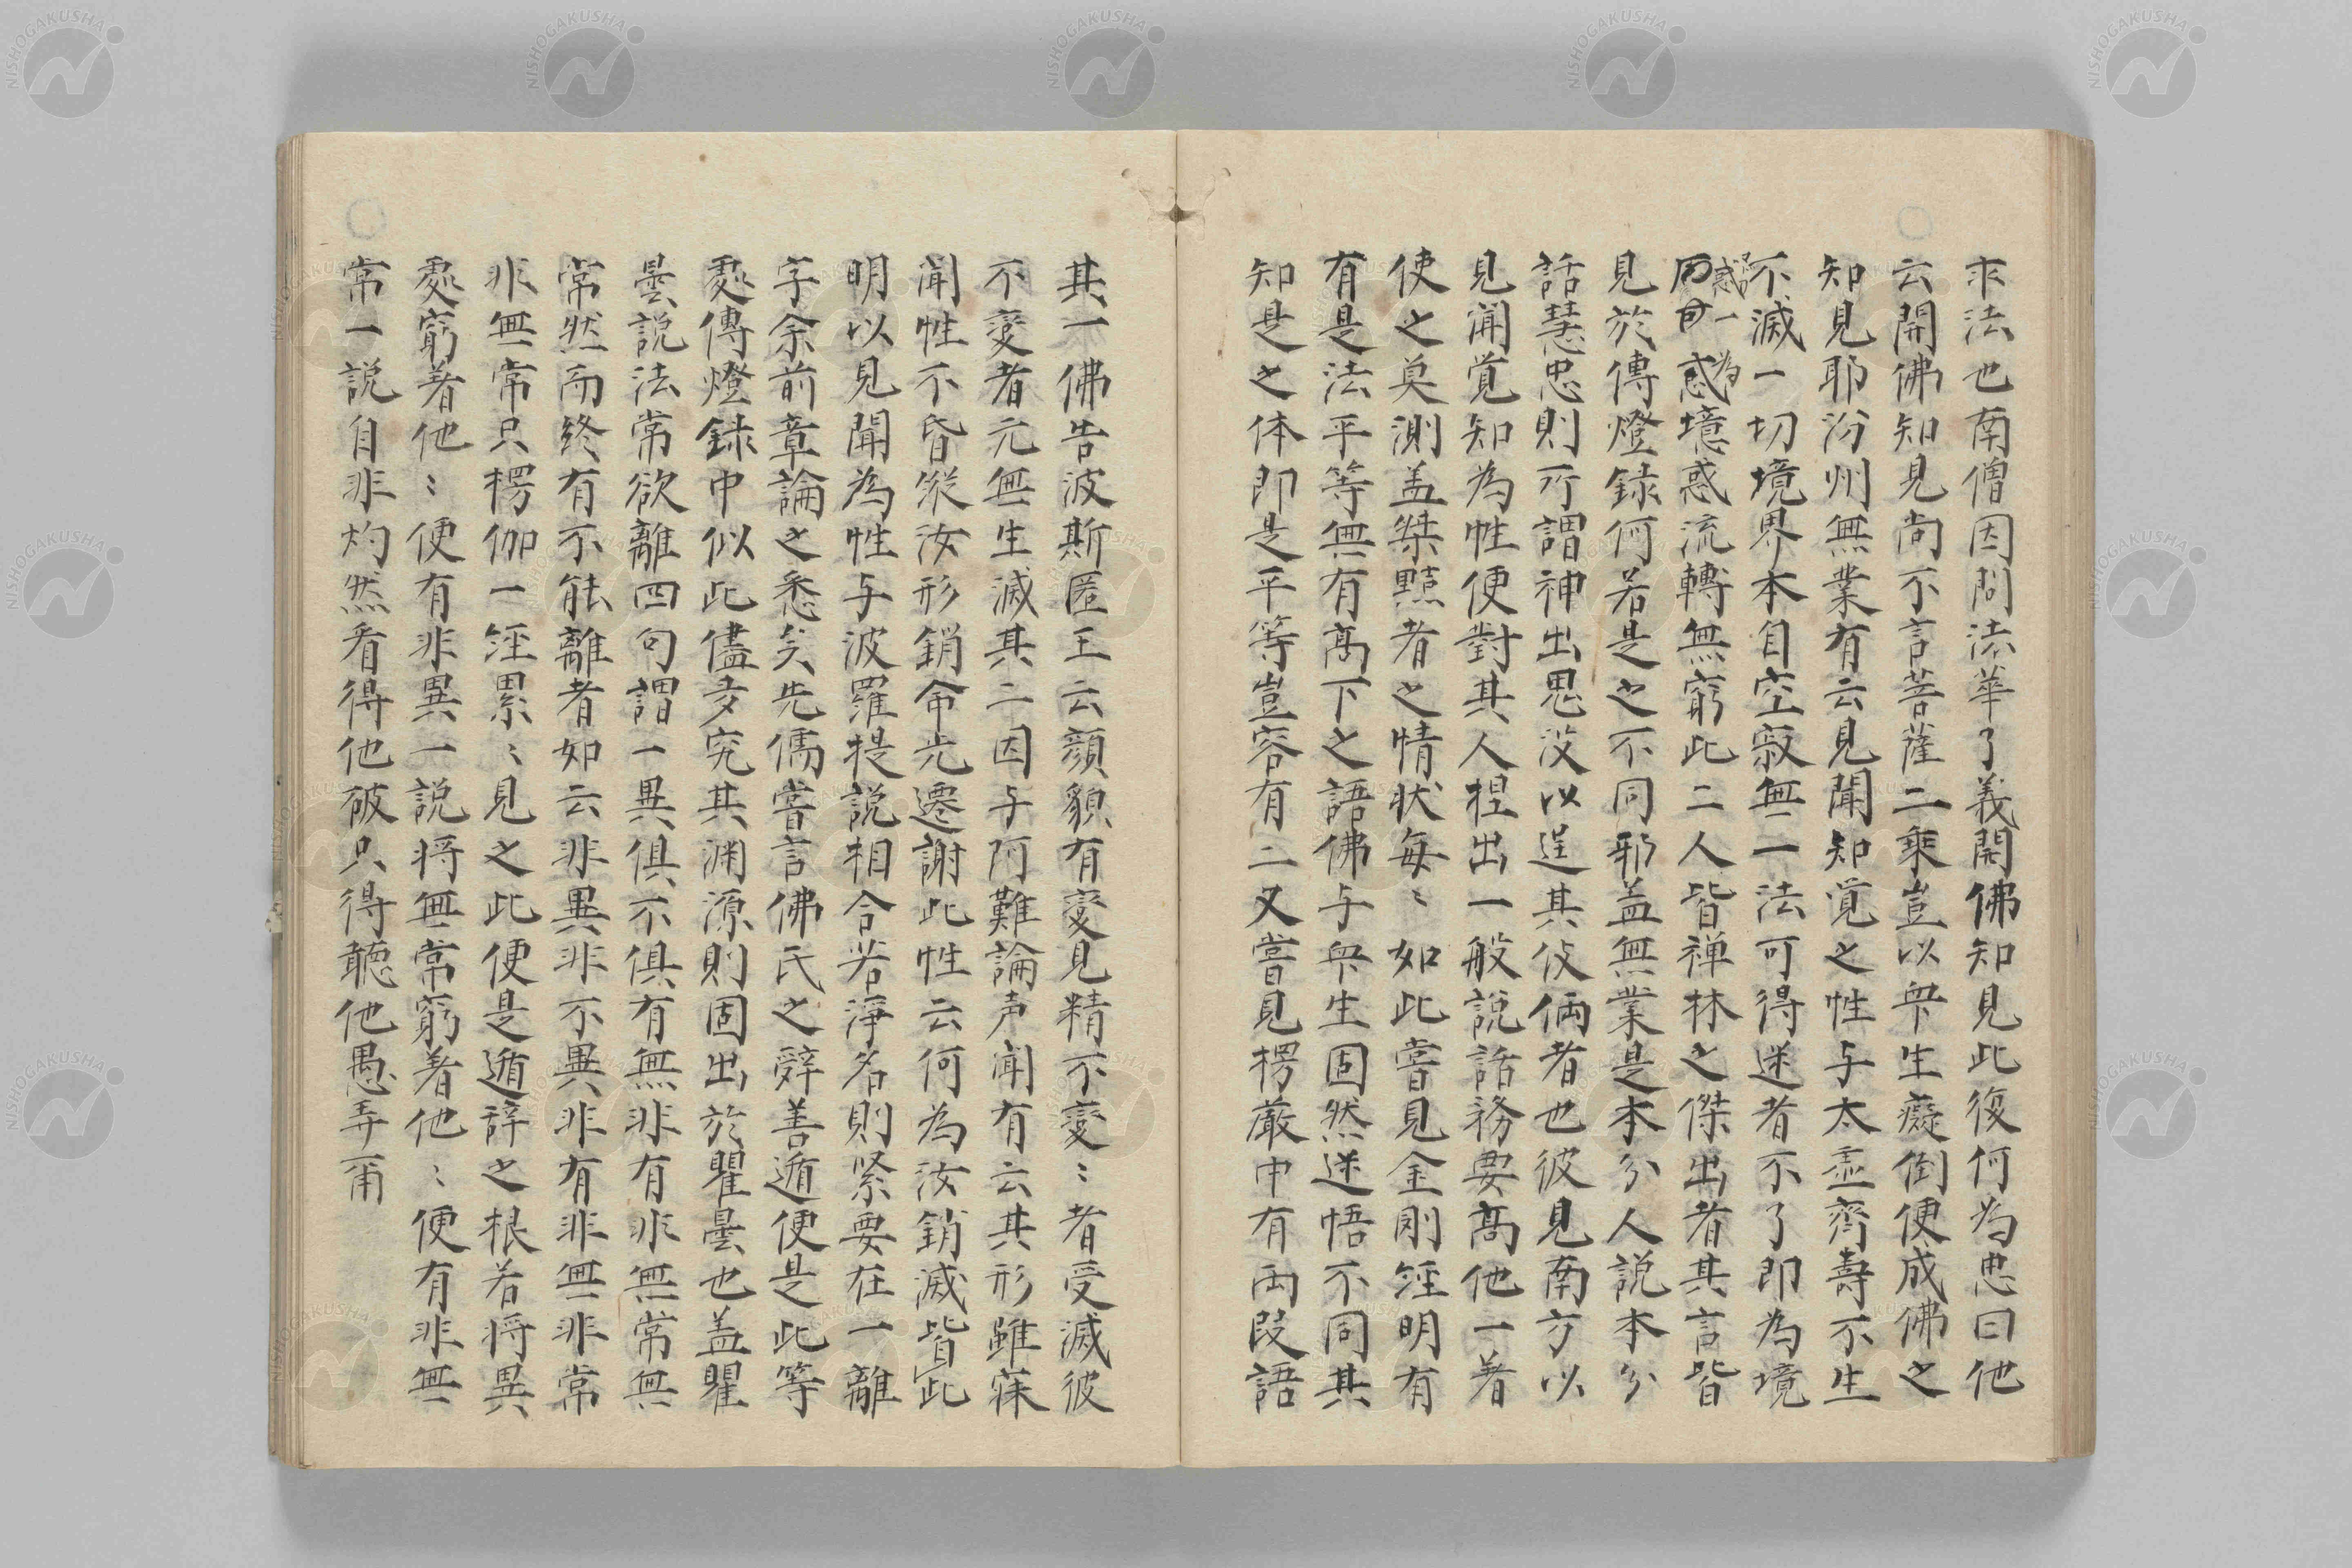 求法也南僧因問法華了義開佛知見此復何為忠曰他
云開佛知見尚不言菩薩二乘豈以衆生癡倒便成佛之
知見耶汾州無業有云見聞知覚之性与太虛齊壽不生
不滅一切境界本自空寂無一法可得迷者不了即為境
惑一為
惑境惑流轉無窮此二人皆禅林之傑出者其言皆
見於傳燈録何若是之不同耶盖無業是本分人説本分
話慧忠則所謂神出思没以逞其伎倆者也彼見南方以
見聞覚知為性便對其人捏出一般説話務要髙他一著
使之莫測盖桀黠者之情状每〻如此嘗見金剛経明有
有是法平等無有髙下之語佛与衆生固然迷悟不同其
知是之体即是平等豈容有二又嘗見楞厳中有両段語
其一佛告波斯匿王云顔貌有変見精不変〻者受滅彼
不変者元無生滅其二因与阿難論声聞有云其形雖寐
聞性不昏縦汝形銷命光遷謝此性云何為汝銷滅皆此
明以見聞為性与波羅提説相合若淨名則緊要在一離
字余前章論之悉矣先儒嘗言佛氏之辞善遁便是此等
處傳燈録中似此儘多究其渊源則固出於瞿曇也盖瞿
曇説法常欲離四句謂一異俱不俱有無非有非無常無
常然而終有不能離者如云非異非不異非有非無非常
非無常只楞伽一経累〻見之此便是遁辞之根若将異
處窮着他〻便有非異一説将無常窮著他〻便有非無
常一説自非灼然看得他破只得聽他愚弄爾